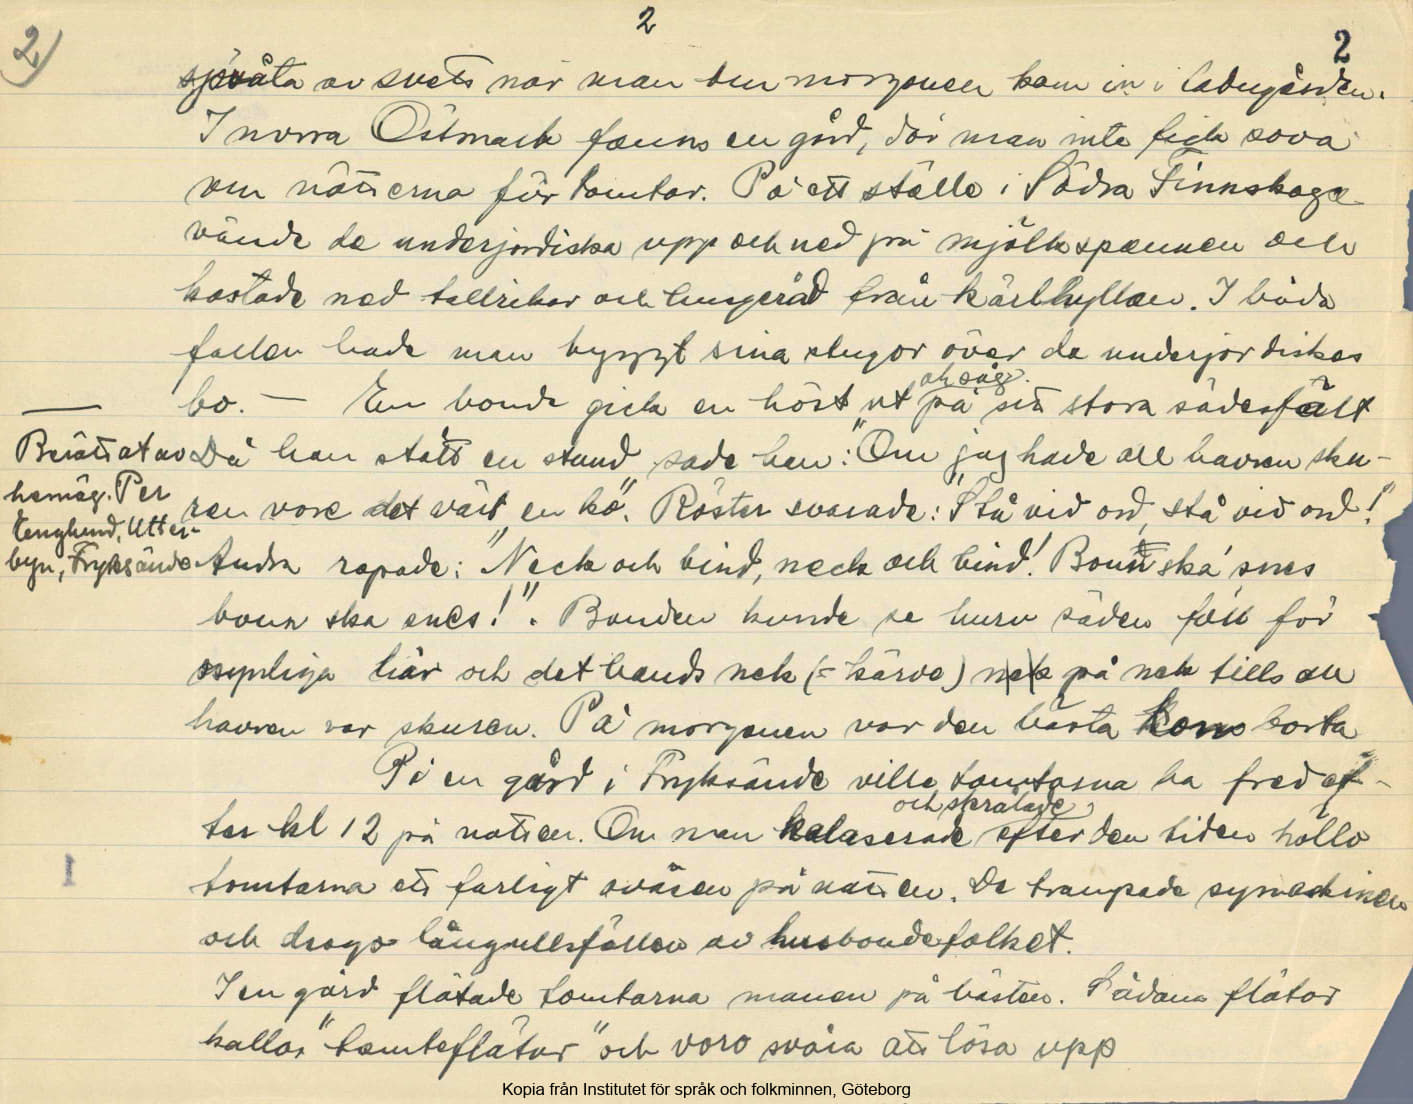 2)
2
2
sjövåta av svett när man om morgonen kom in i ladugården.
I norra Östmark fanns en gård, där man inte fick sova
om nätterna för tomtar. På ett ställe i Södra Finnskoga
vände de underjordiska upp och ned på mjölkspannen och
kastade ned tallrikar och husgeråd från kärlhyllan. I båda
fallen hade man byggt sina stugor över de underjordiskas
bo. — En bonde gick en höst ut på sitt stora sädesfält
och såg
Då han stått en stund sade han: "Om jag hade all havren sku-
ren vore det värt en ko". Röster svarade: "Stå vid ord, stå vid ord!"
Andra ropade: "Neck och bind, neck och bind! Bonn ska snes
bonn ska snes!". Bonden kunde se huru säden föll för
osynliga liar och det bands nek (= kärve) nek på nek tills all
havren var skuren. På morgonen var den bästa kon borta
På en gård i Fryksände ville tomtarna ha fred ef-
ter kl 12 på natten. Om man kalaserade efter den tiden höllo
och spralade
tomtarna ett farligt oväsen på natten. De trampade symaskinen
och drogo långullsfällen av husbondefolket.
I en gård flätade tomtarna manen på hästen. Sådana flätor
kallas "tomteflätor" och voro svåra att lösa upp
Berättat av
hemäg. Per
Englund, Utter-
byn, Fryksände
1
Kopia från Institutet för språk och folkminnen, Göteborg